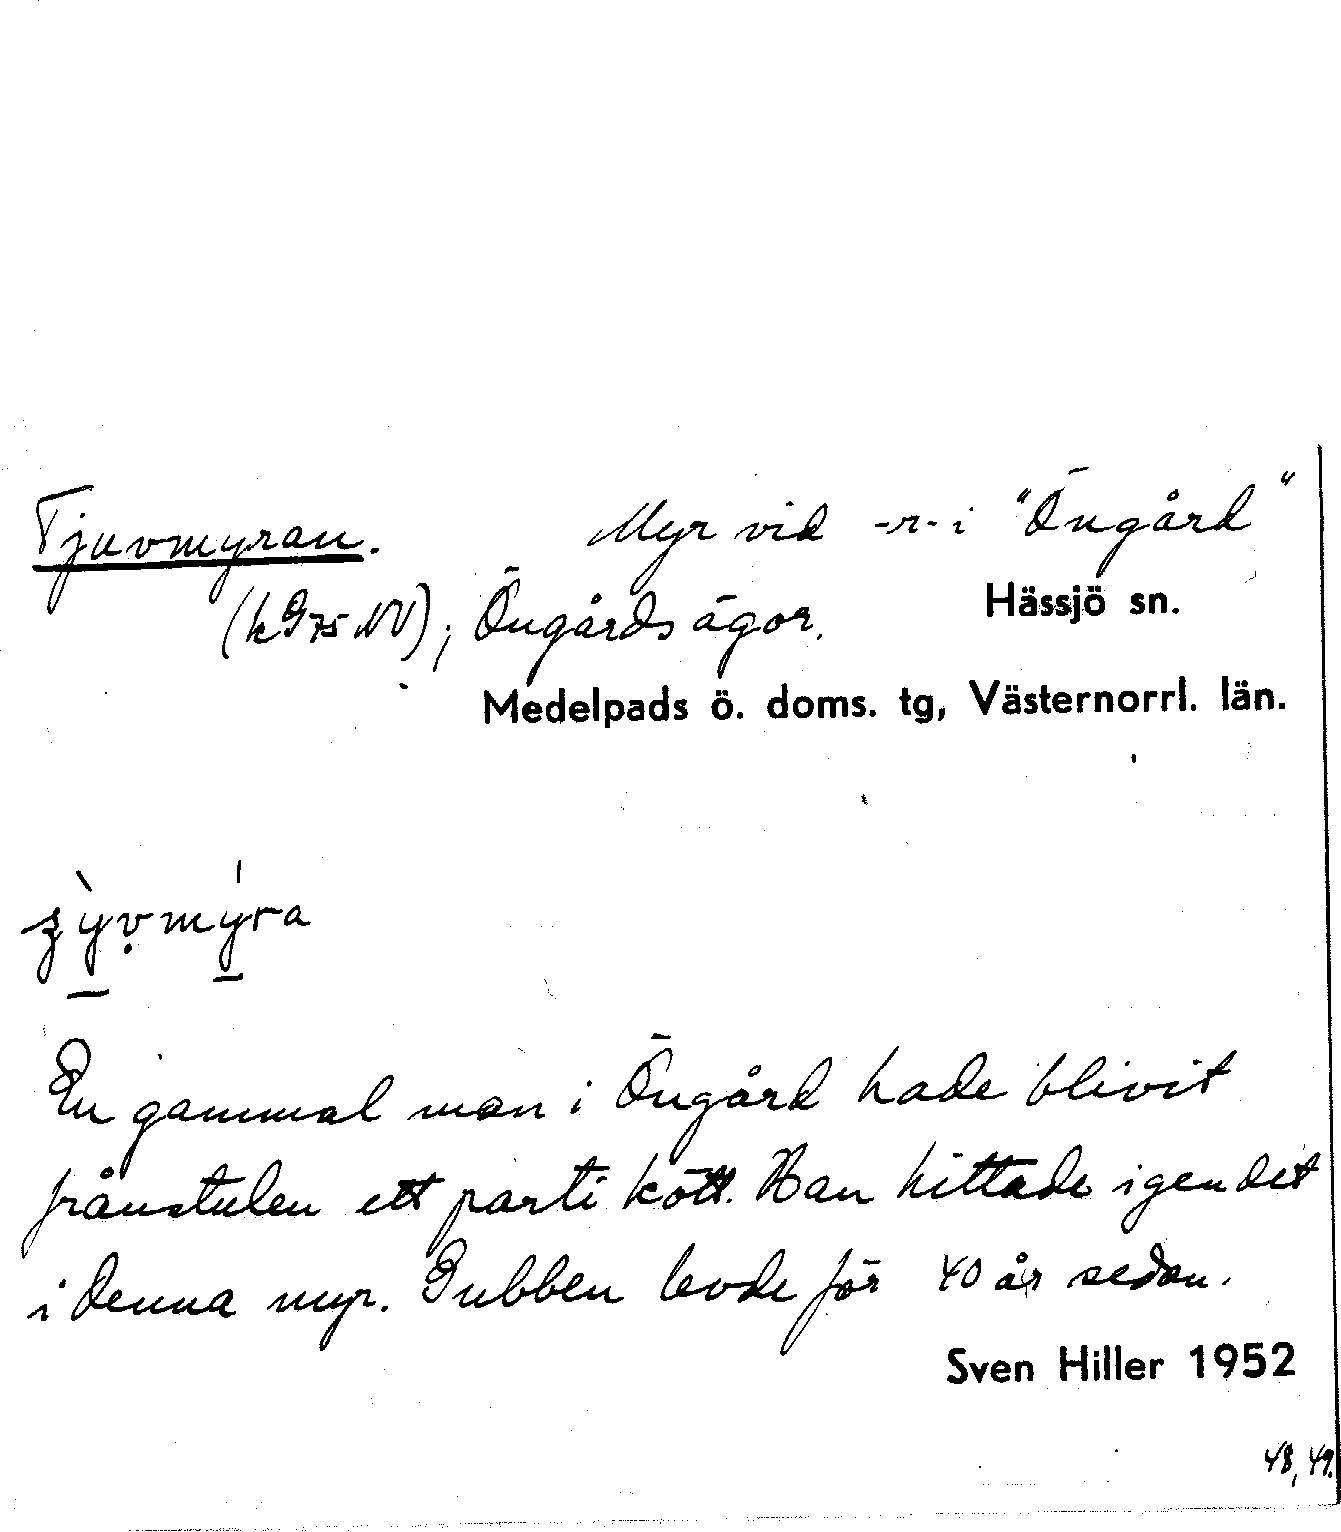 Tjuvmyran. Myr vid -r- i "Öngård"
Hässjö sn.
(k 975 NV); Öngårds ägor.
Medelpads ö. doms. tg, Västernorrl. län.
En gammal man i Öngård hade blivit
frånstulen ett parti kött. Han hittade igen det
i denna myr. Gubben levde för 40 år sedan.
Sven Hiller 1952
48, 49.